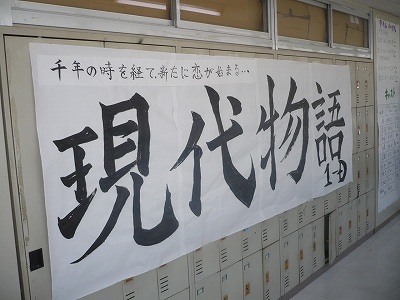 千年の時を経て、新たに恋が始まる…
現代物語
1-D